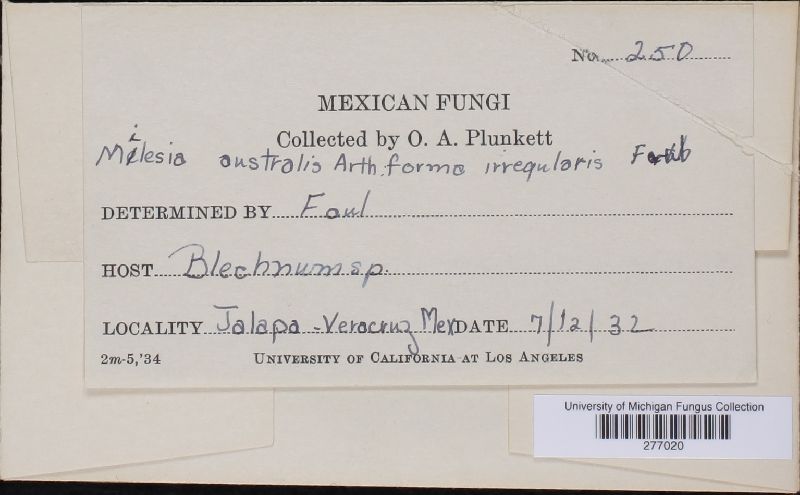 No. 250
MEXICAN FUNGI
Collected by O. A. Plunkett
Milesia australis Arth. forma irregularis
DETERMINED BY Faul
HOST Blechnum sp.
LOCALITY Jalapa - Veracruz Mex DATE 7/12/32
2m-5,'34 UNIVERSITY OF CALIFORNIA AT LOS ANGELES
University of Michigan Fungus Collection
277020